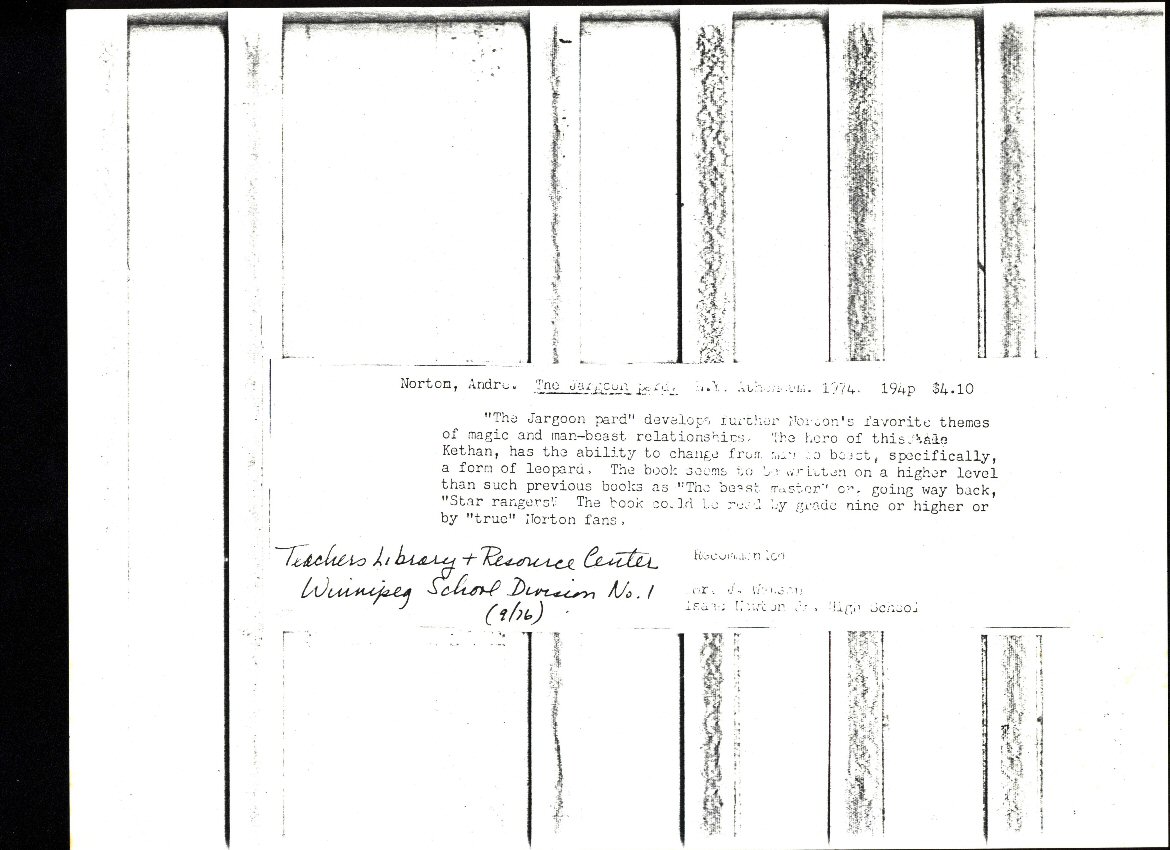 Norton, Andre. The Jargoon pard. N.Y. Atheneum. 1974. 194p $4.10
"The Jargoon pard" develops further Norton's favorite themes
of magic and man-beast relationships. The hero of this
Kethan, has the ability to change from man to beast, specifically,
a form of leopard. The book seems to be written on a higher level
than such previous books as "The beast master" or, going way back,
"Star rangers" The book could be read by grade nine or higher or
by "true" Norton fans.
Teachers Library + Resource Center
Winnipeg School Division No. 1
(9/76)
Recommended
Isaac Newton Jr. High School